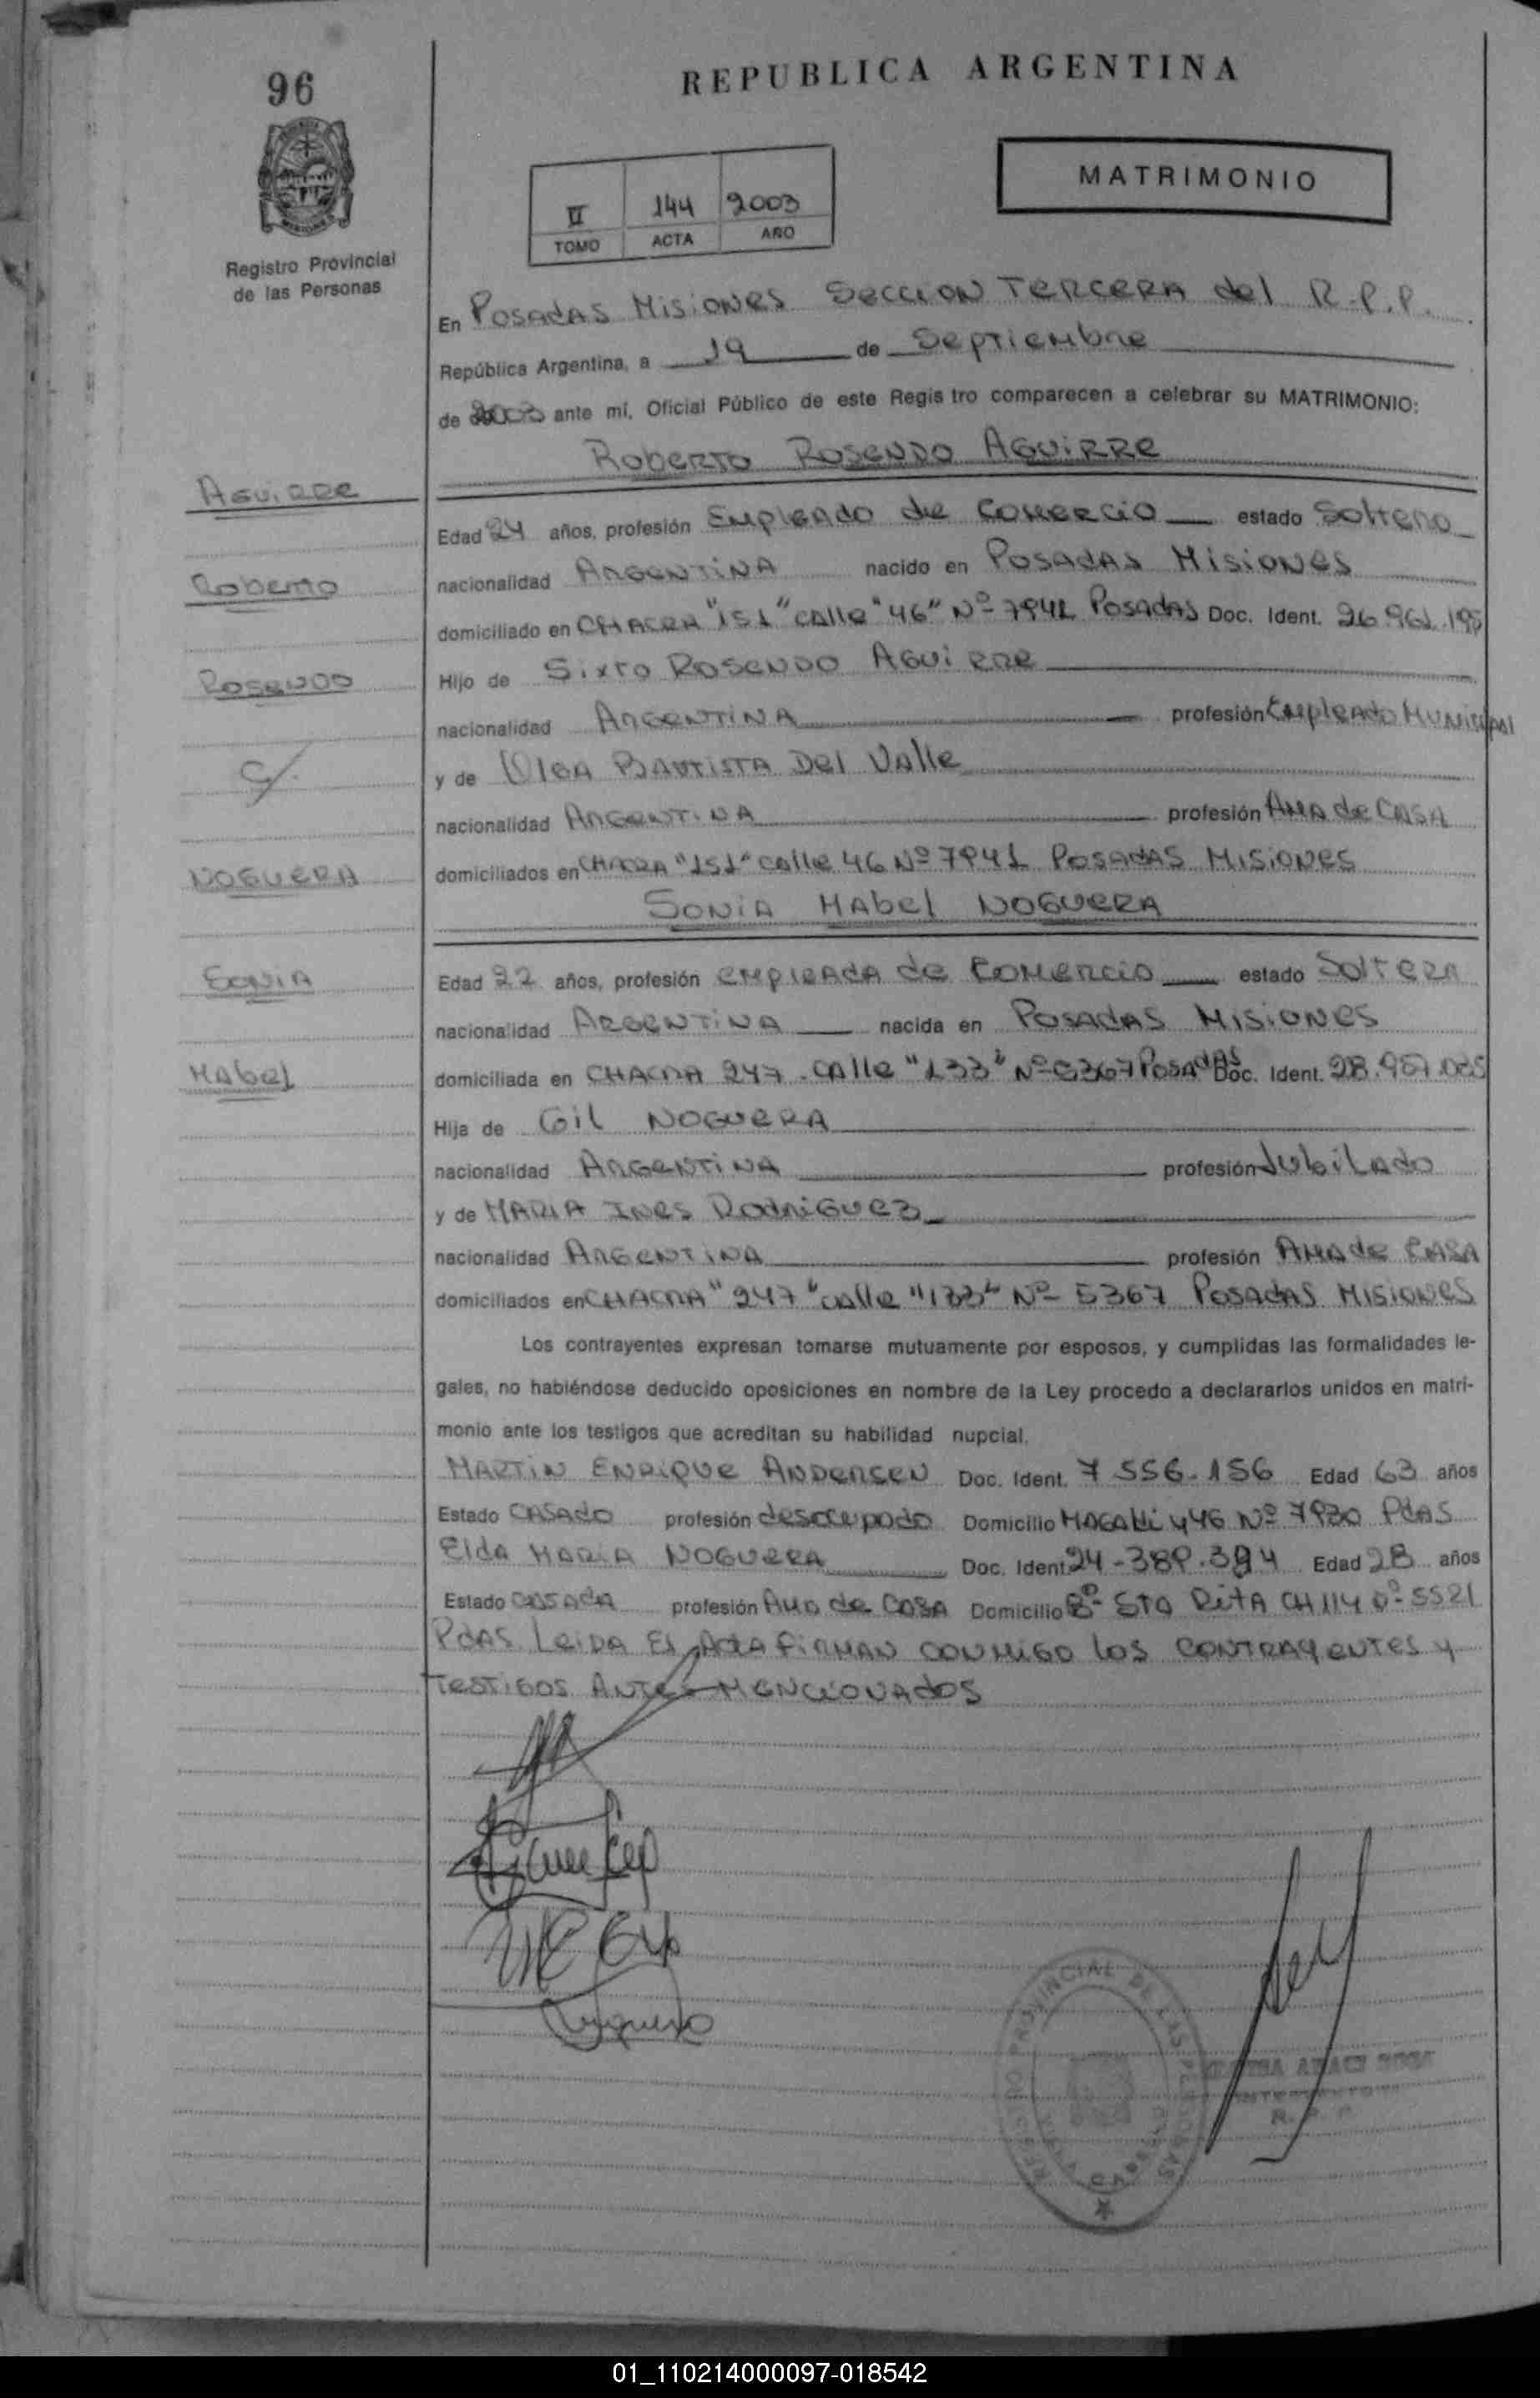 96
REPUBLICA ARGENTINA
MATRIMONIO
II 144 2003
TOMO ACTA AÑO
Registro Provincial
de las Personas
En POSADAS MISIONES SECCION TERCERA del R.P.P.
República Argentina, a 19 de Septiembre
de 2003 ante mí, Oficial Público de este Regis tro comparecen a celebrar su MATRIMONIO:
ROBERTO ROSENDO AGUIRRE
AGUIRRE
Edad 24 años, profesión Empleado de Comercio estado Soltero
ROBERTO
nacionalidad ARGENTINA nacido en POSADAS MISIONES
domiciliado en CHACRA "151" Calle "46" Nº 7941 POSADAS Doc. Ident. 26.961.195
ROSENDO
Hijo de Sixto ROSENDO AGUIRRE
nacionalidad ARGENTINA profesión Empleado Municipal
C/.
y de OLGA BAUTISTA Del Valle
nacionalidad ARGENTINA profesión AMA de CASA
NOGUERA
domiciliados en CHACRA "151" Calle 46 Nº 7941 POSADAS MISIONES
SONIA MABEL NOGUERA
SONIA
Edad 22 años, profesión empleada de Comercio estado Soltera
nacionalidad ARGENTINA nacida en POSADAS MISIONES
MABEL
domiciliada en CHACRA 247 - Calle "133" Nº 5367 POSADAS Doc. Ident. 28.957.035
Hija de Gil NOGUERA
nacionalidad ARGENTINA profesión Jubilado
y de MARIA INES RODRIGUEZ
nacionalidad ARGENTINA profesión AMA de CASA
domiciliados en CHACRA "247" calle "133" Nº 5367 POSADAS MISIONES
Los contrayentes expresan tomarse mutuamente por esposos, y cumplidas las formalidades le-
gales, no habiéndose deducido oposiciones en nombre de la Ley procedo a declararlos unidos en matri-
monio ante los testigos que acreditan su habilidad nupcial.
MARTIN ENRIQUE ANDERSEN Doc. Ident. 7 556.156 Edad 63 años
Estado CASADO profesión desocupado Domicilio Nº 7930 Pdas
Elda MARIA NOGUERA Doc. Ident 24-389.394 Edad 28 años
Estado CASADA profesión Ama de CASA Domicilio Bº STA RITA CH 114 5521
Pdas Leida El Acta FIRMAN CONMIGO los CONTRAYENTES y
TESTIGOS ANTES MENCIONADOS
REGISTRO PROVINCIAL DE LAS PERSONAS
R. P. P.
01_110214000097-018542